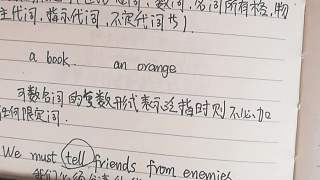 数词，名词所有格，物
主代词，指示代词，不定代词书）
a book. an orange
可数名词的复数形式表示泛指时则不必加
任何限定词．
We must tell friends from enemies